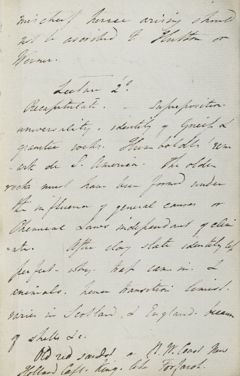 mischief hence arising should
not be ascribed to Hutton or
Werner.
Lecture 2d.
Recapitulate. — Superposition
universality, identity of Gneiss &
granitic rocks. Humboldt's rem
ark de S. America. The older
rocks must have been formed under
the influence of general causes or
Chemical Laws independent of clim
ate. After clay slate identity less
perfect. clay, trap can in. &
animals. hence transition limest.
varies in Scotland & England. because
of shells &c.
Old red sandst. or N. W. Coast New
Holland Capt. King. like Forfarsh.